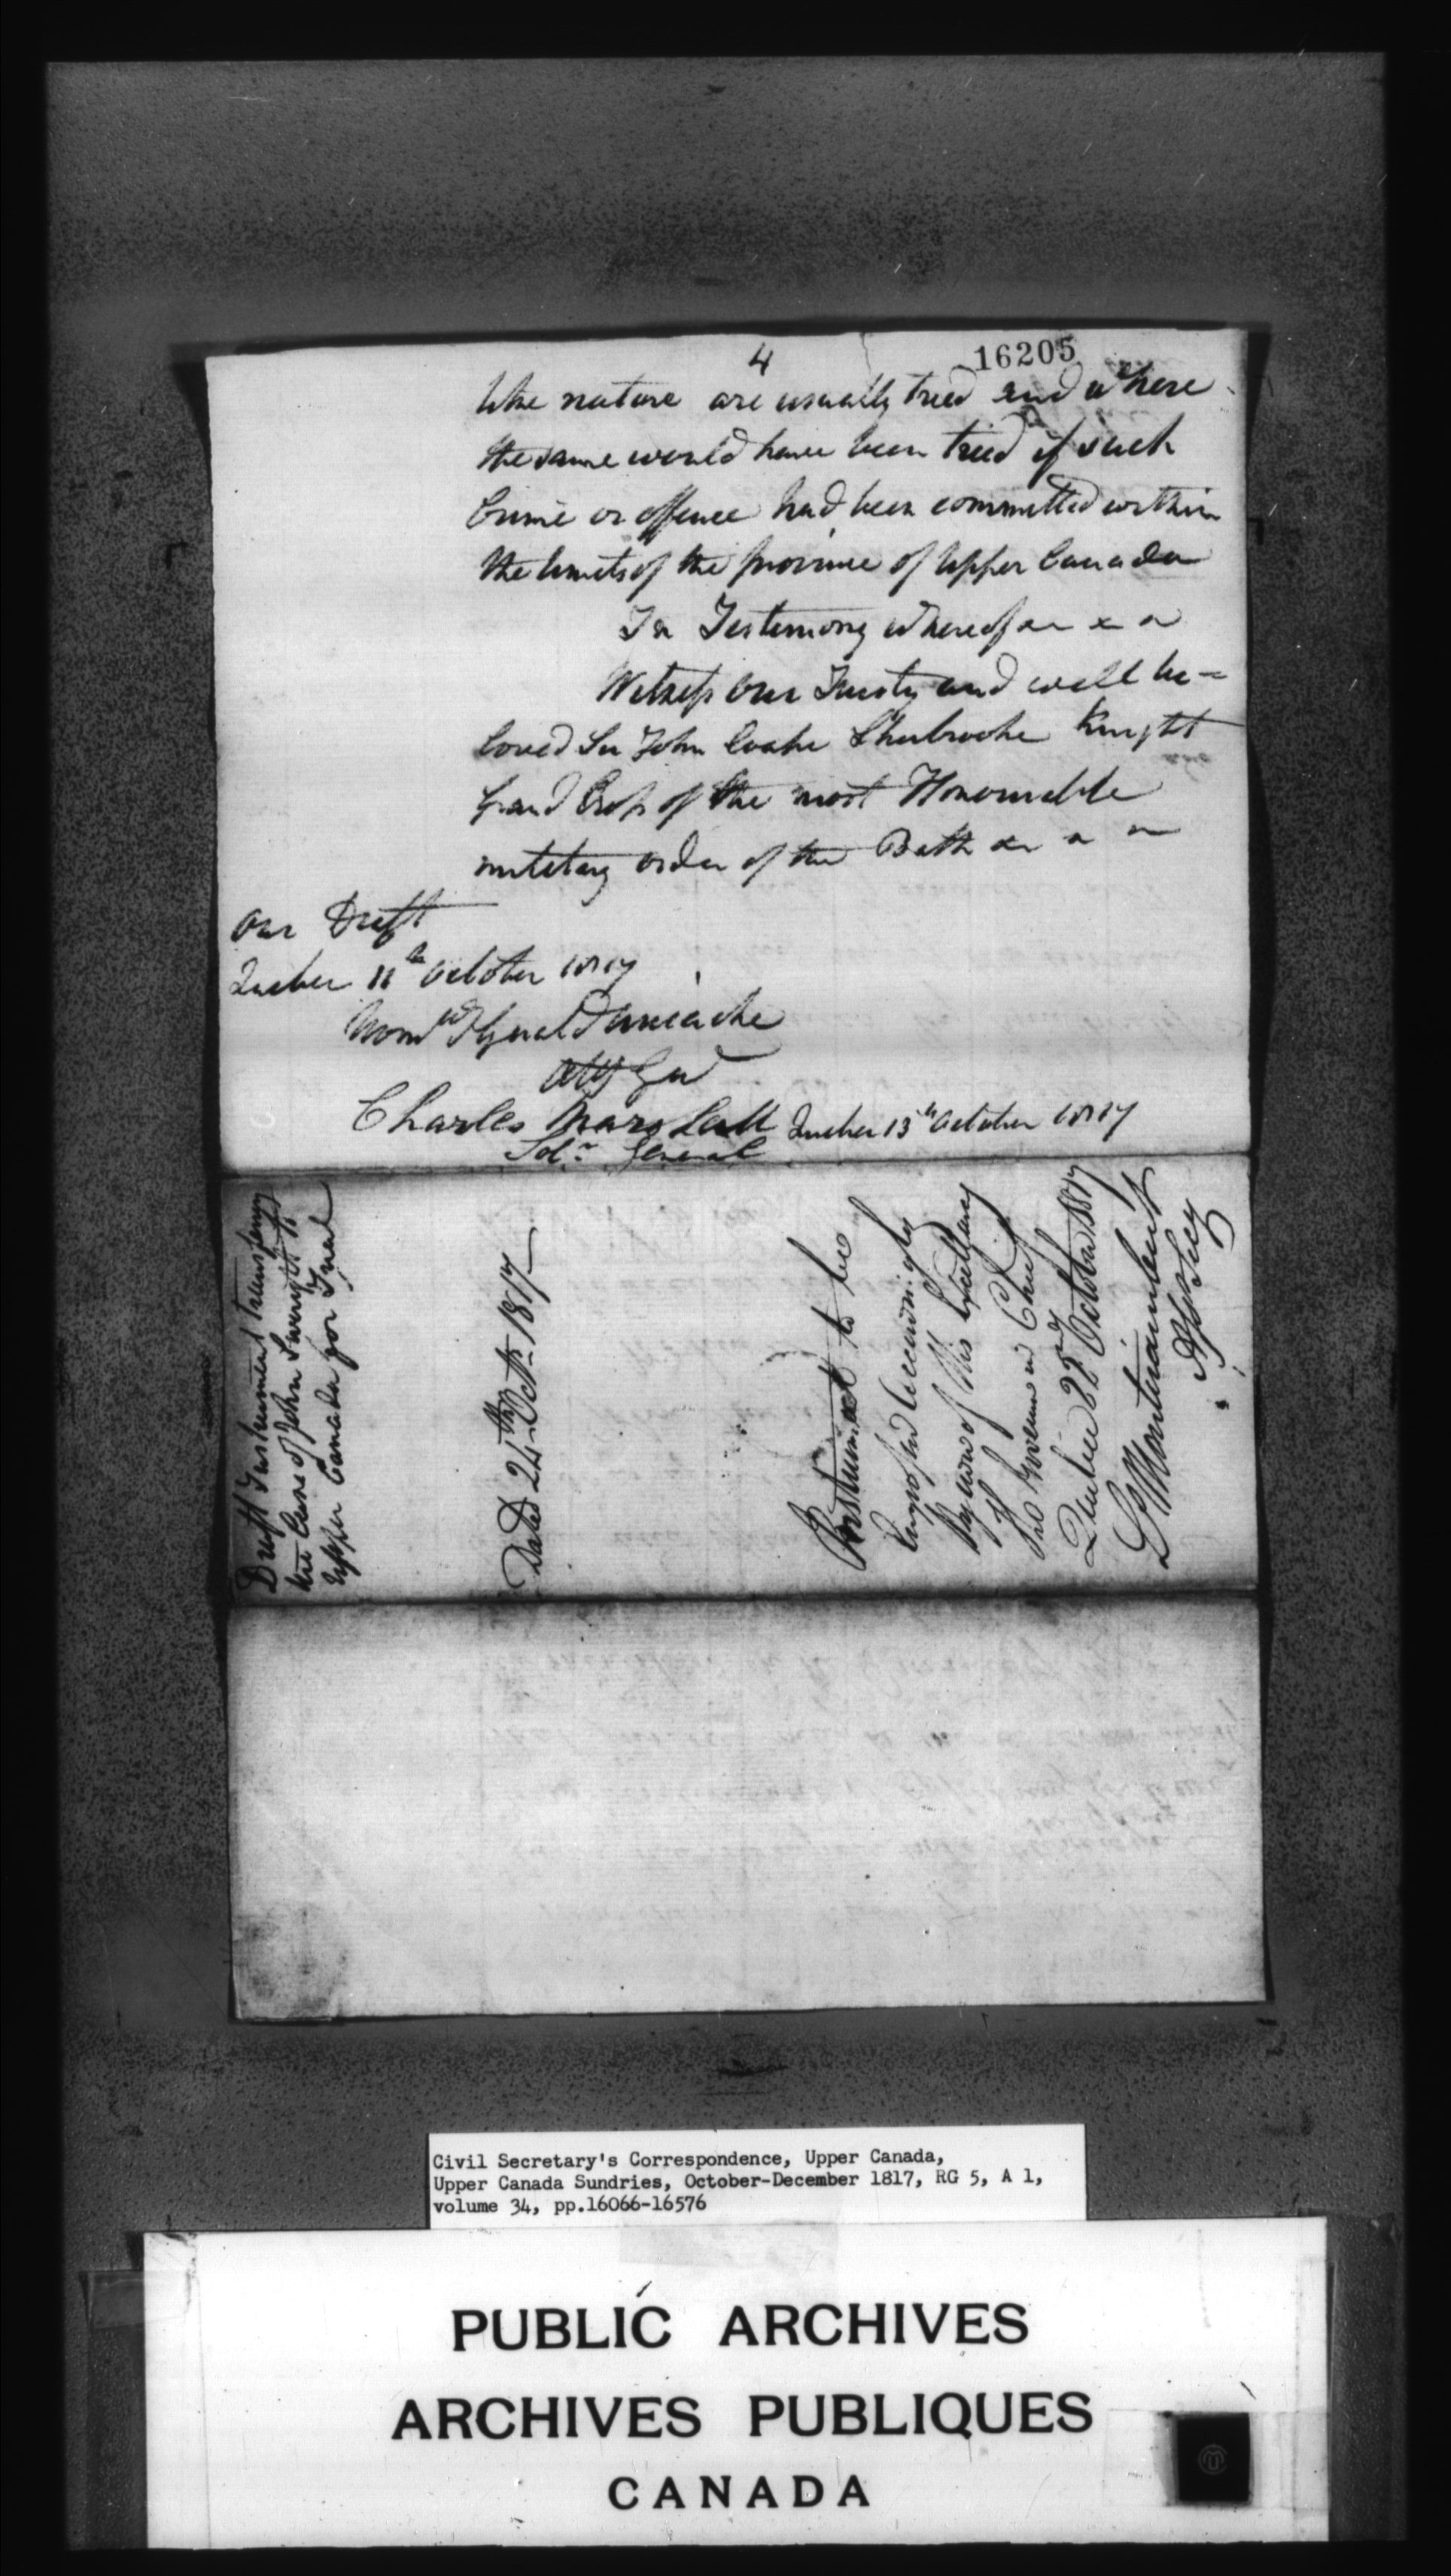 4
16205
like nature are usually tried and where
the same would have been tried if such
Crime or offence had been committed within
the limits of the province of Upper Canada
In Testimony whereof
Witness Our Trusty and well be-
loved Sir John Coape Sherbrooke Knight
Grand Cross of the most Honourable
military order of the Bath
Our Draft
Quebec 11th October 1817
Atty Genl
Charles Marshall Quebec 13th October 1817
Solr General
Draft Instrument transferring
the Case of John to
Upper Canada for Trial
Dated 24th Octr 1817
Instrument to be
engrossed accordingly
By order of His Excellency
The Governor in Chief
Quebec 22nd October 1817
Montizambert
Asst Secy
Civil Secretary's Correspondence, Upper Canada,
Upper Canada Sundries, October-December 1817, RG 5, A 1,
volume 34, pp.16066-16576
PUBLIC ARCHIVES
ARCHIVES PUBLIQUES
CANADA